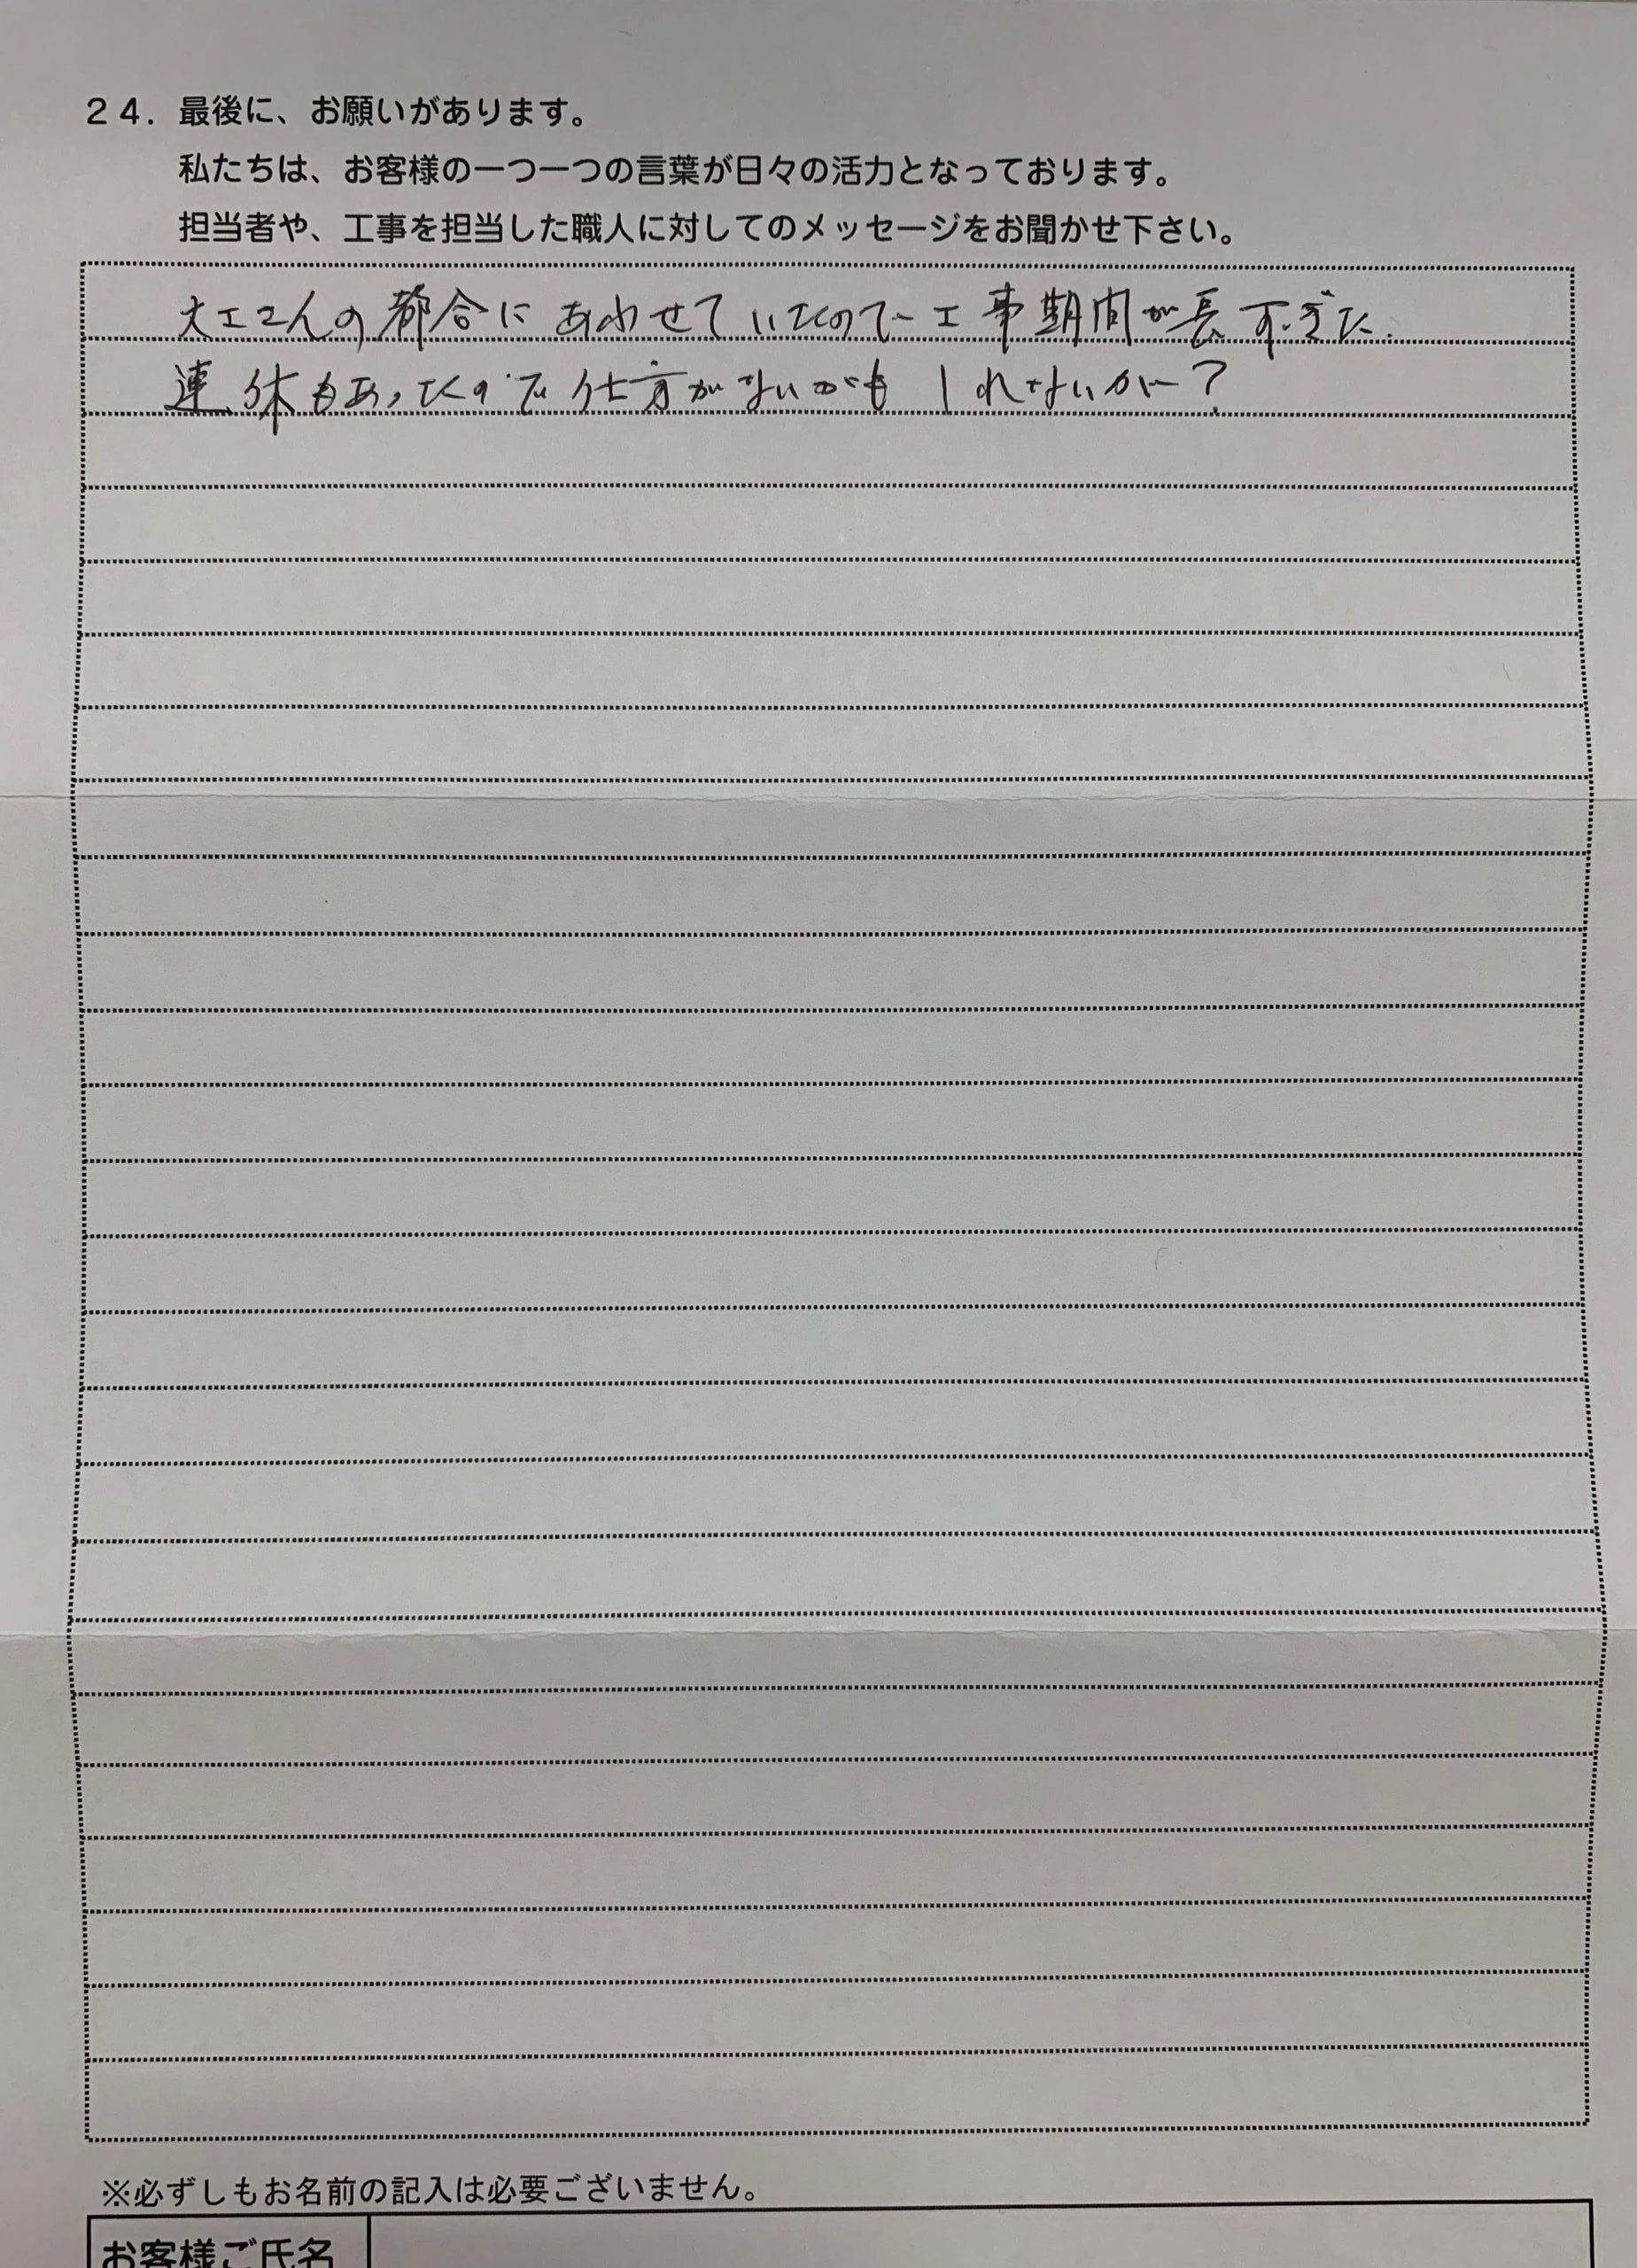 ２４．最後に、お願いがあります。
私たちは、お客様の一つ一つの言葉が日々の活力となっております。
担当者や、工事を担当した職人に対してのメッセージをお聞かせ下さい。
大工さんの都合にあわせていたので工事期間が長すぎた.
連休もあったので仕方がないかもしれないが－？
※必ずしもお名前の記入は必要ございません。
お客様ご氏名